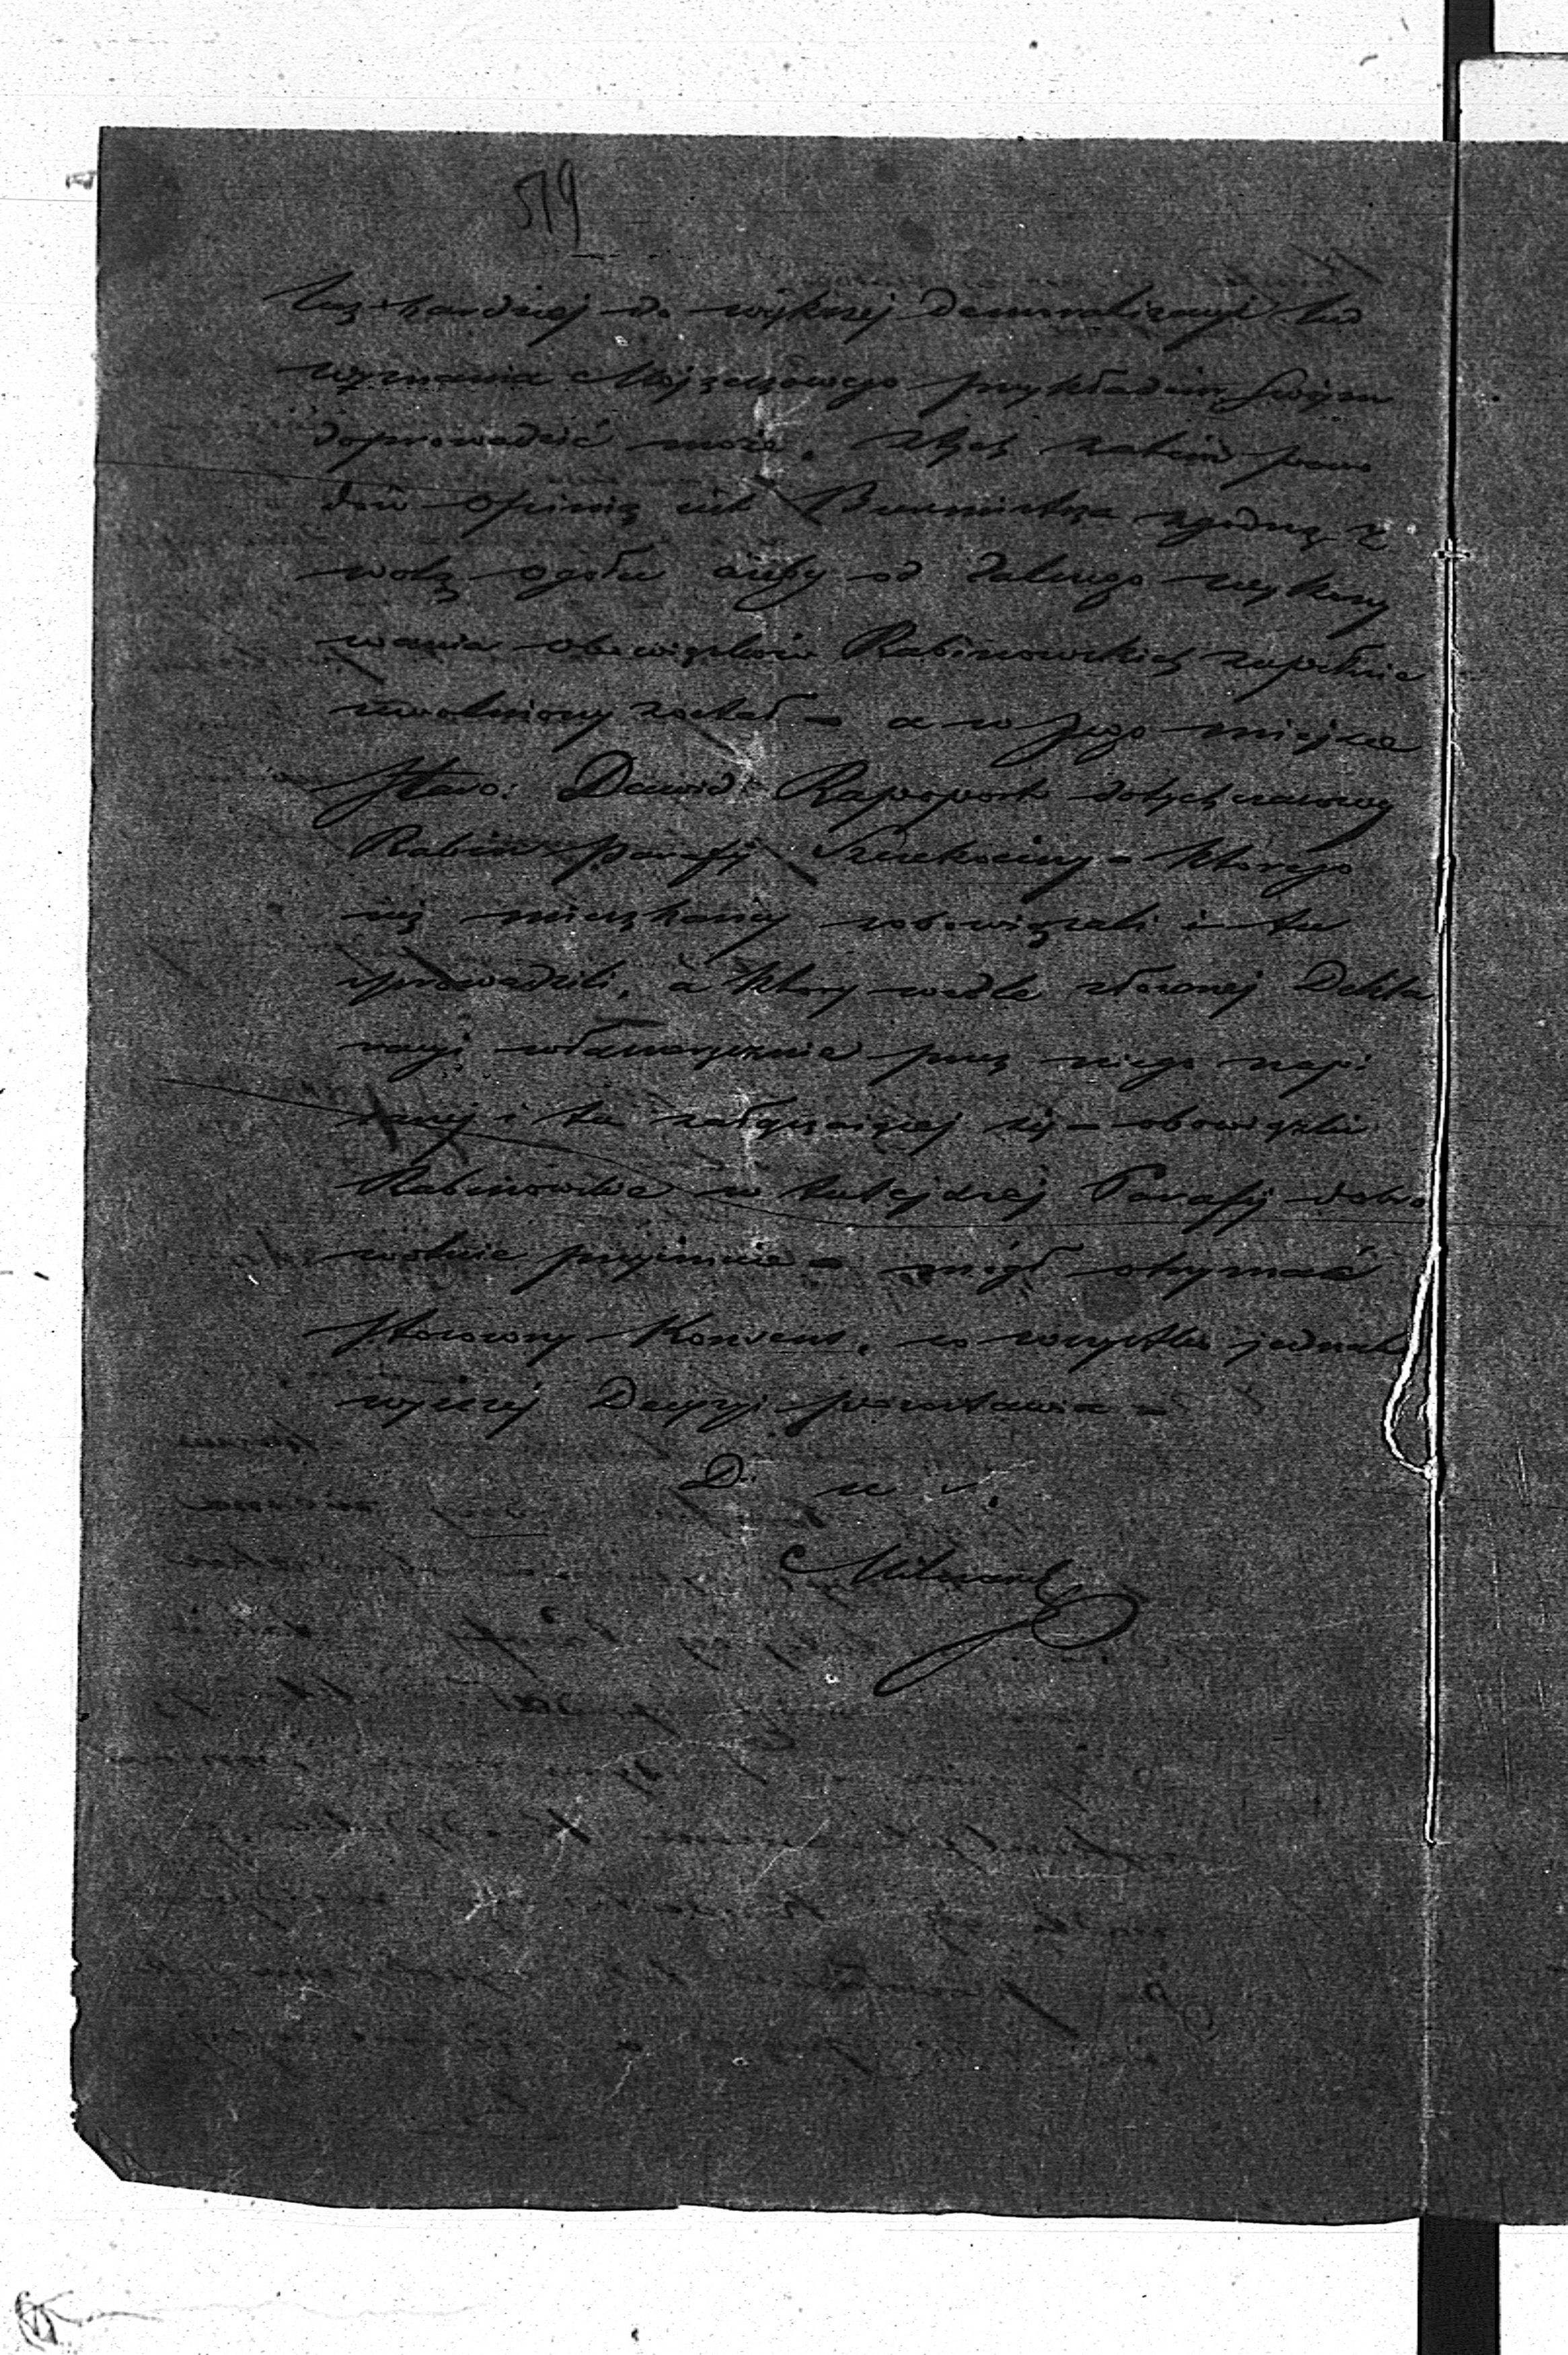 519
tem bardziej do większej demoralizacyi lud
wyznania Mojżeszowego przykładem swym
doprowadzić może. z tych zatem powo
dów opinią jest Burmistrza zgodną z
wolą ogółu ażeby od dalszego wykony
wania obowiązków Rabinowskich zupełnie
uwolniony został – a w jego miejsce
Staro: Dawid Rapoport dotychczasowy
Rabin parafij Szczekociny – którego
już mieszkańcy zobowiązali i tu
sprowadzili, a który wedle złożonej Dekla
racyi własnoręcznie przez niego napi
sanej i tu załączającej się – obowiązki
Rabinowskie w tutejszej Parafij dobro
wolnie przyjmuie – mógł otrzymać
stosowny Konsens, co wszystko jednak
wyższej Decyzyi pozostawia –
D. u s.